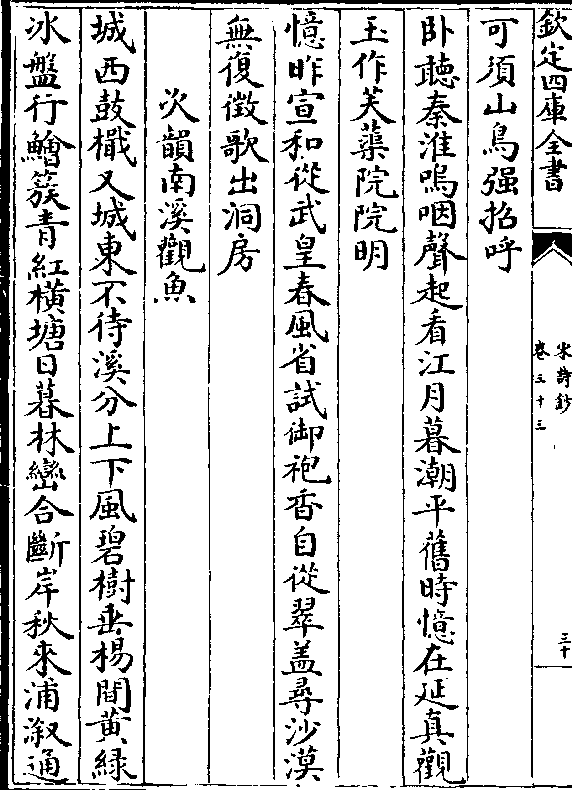 欽定四庫全書
宋詩鈔
卷三十三
三十
可須山鳥强招呼
卧聽秦淮嗚咽聲起看江月暮潮平舊時憶在延真觀
玉作芙蕖院院明
憶昨宣和從武皇春風省試御袍香自從翠盖尋沙漠
無復徴歌出洞房
次韻南溪觀魚
城西鼓檝又城東不待溪分上下風碧樹垂楊間黄緑
冰盤行鱠簇青紅橫塘日暮林巒合斷岸秋來浦漵通